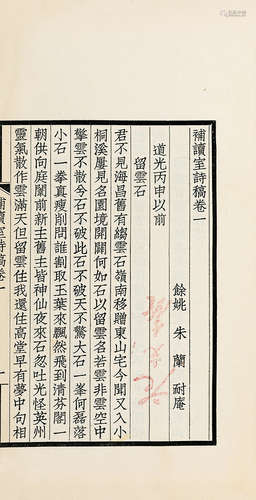 補讀室詩稿卷一
餘姚 朱蘭 耐庵
道光丙申以前
留雲石
君不見海昌舊有縐雲石嶺南移贈東山宅今聞又入小
桐溪屢見名園境開闢何如石以留雲名若雲非雲空中
擎雲不散兮石不破此石不破天不驚大石一峯何磊落
小石一拳真瘦削問誰割取玉葉來飄然飛到清芬閣一
朝供向庭闈前新主舊主皆神仙夜來石忽吐光怪英州
靈氣散作雲滿天但留雲住我還住高堂早有夢中句相
補讀室詩稿卷一
一